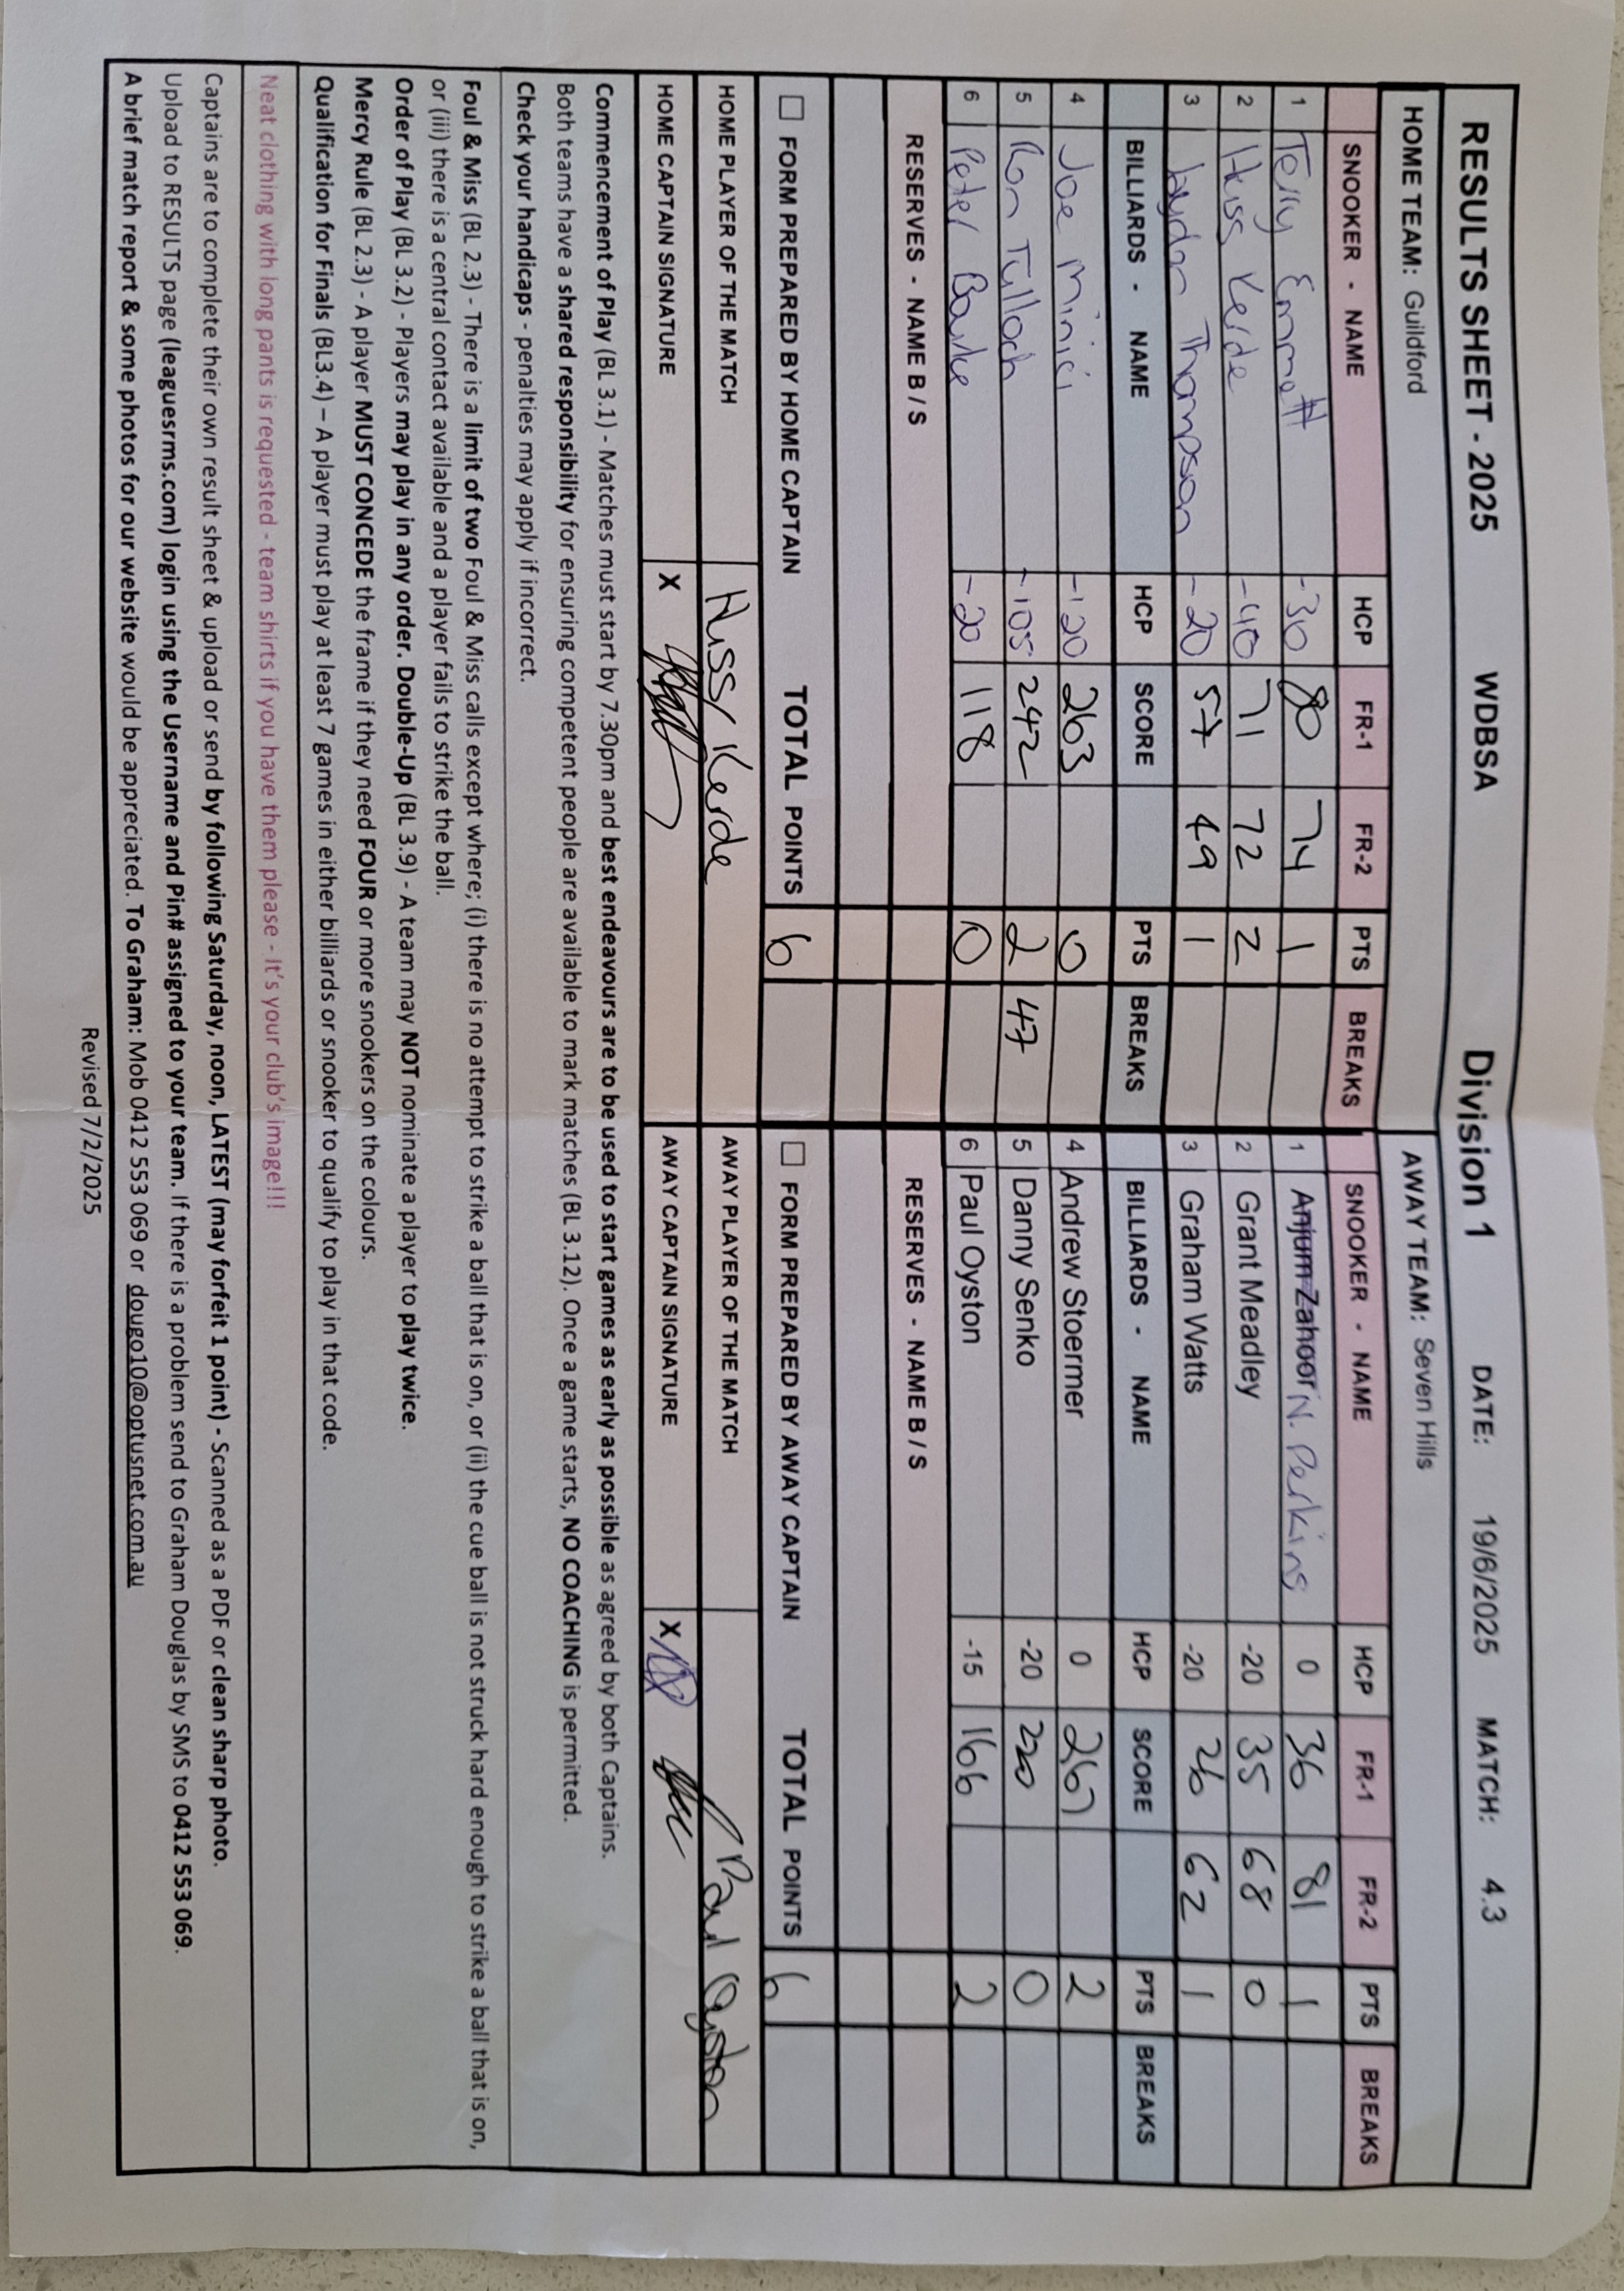 RESULTS SHEET - 2025 WDBSA Division 1 DATE: 19/6/2025 MATCH: 4.3
HOME TEAM: Guildford AWAY TEAM: Seven Hills
SNOOKER - NAME HCP FR-1 FR-2 PTS BREAKS SNOOKER - NAME HCP FR-1 FR-2 PTS BREAKS
1 Terry Emmett -30 80 74 1 1 Anjum Zahoor N. Perkins 0 36 81 1
2 Huss Kerde -40 71 72 2 2 Grant Meadley -20 35 68 0
3 Thompson -20 57 49 1 3 Graham Watts -20 26 62 1
BILLIARDS - NAME HCP SCORE PTS BREAKS BILLIARDS - NAME HCP SCORE PTS BREAKS
4 Joe Minici -120 263 0 4 Andrew Stoermer 0 267 2
5 Ron Tulloch -105 242 2 47 5 Danny Senko -20 220 0
6 Peter -20 118 0 6 Paul Oyston -15 166 2
RESERVES - NAME B / S RESERVES - NAME B / S
FORM PREPARED BY HOME CAPTAIN TOTAL POINTS 6 FORM PREPARED BY AWAY CAPTAIN TOTAL POINTS 6
HOME PLAYER OF THE MATCH Huss Kerde AWAY PLAYER OF THE MATCH Paul Oyston
HOME CAPTAIN SIGNATURE X AWAY CAPTAIN SIGNATURE X
Commencement of Play (BL 3.1) - Matches must start by 7.30pm and best endeavours are to be used to start games as early as possible as agreed by both Captains.
Both teams have a shared responsibility for ensuring competent people are available to mark matches (BL 3.12). Once a game starts, NO COACHING is permitted.
Check your handicaps - penalties may apply if incorrect.
Foul & Miss (BL 2.3) - There is a limit of two Foul & Miss calls except where; (i) there is no attempt to strike a ball that is on, or (ii) the cue ball is not struck hard enough to strike a ball that is on,
or (iii) there is a central contact available and a player fails to strike the ball.
Order of Play (BL 3.2) - Players may play in any order. Double-Up (BL 3.9) - A team may NOT nominate a player to play twice.
Mercy Rule (BL 2.3) - A player MUST CONCEDE the frame if they need FOUR or more snookers on the colours.
Qualification for Finals (BL3.4) – A player must play at least 7 games in either billiards or snooker to qualify to play in that code.
Neat clothing with long pants is requested - team shirts if you have them please - It's your club's image!!!
Captains are to complete their own result sheet & upload or send by following Saturday, noon, LATEST (may forfeit 1 point) - Scanned as a PDF or clean sharp photo.
Upload to RESULTS page (leaguesrms.com) login using the Username and Pin# assigned to your team. If there is a problem send to Graham Douglas by SMS to 0412 553 069.
A brief match report & some photos for our website would be appreciated. To Graham: Mob 0412 553 069 or dougo10@optusnet.com.au
Revised 7/2/2025